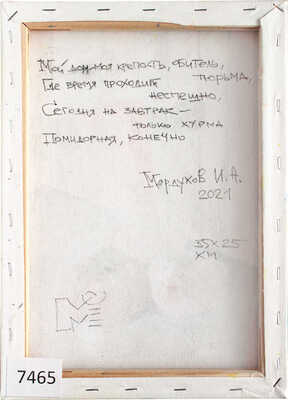 Мой дом-моя крепость, обитель,
тюрьма,
Где время проходит
неспешно,
Сегодня на завтрак—
только хурма
Помидорная, конечно
Мордухов И.А.
2021
35×25
х.м.
7465